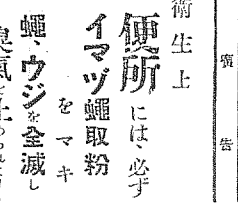 廣告
衛生上
便所には必ず
イマヅ蠅取粉
をマキ
蠅、ウジを全滅し
臭氣を止め